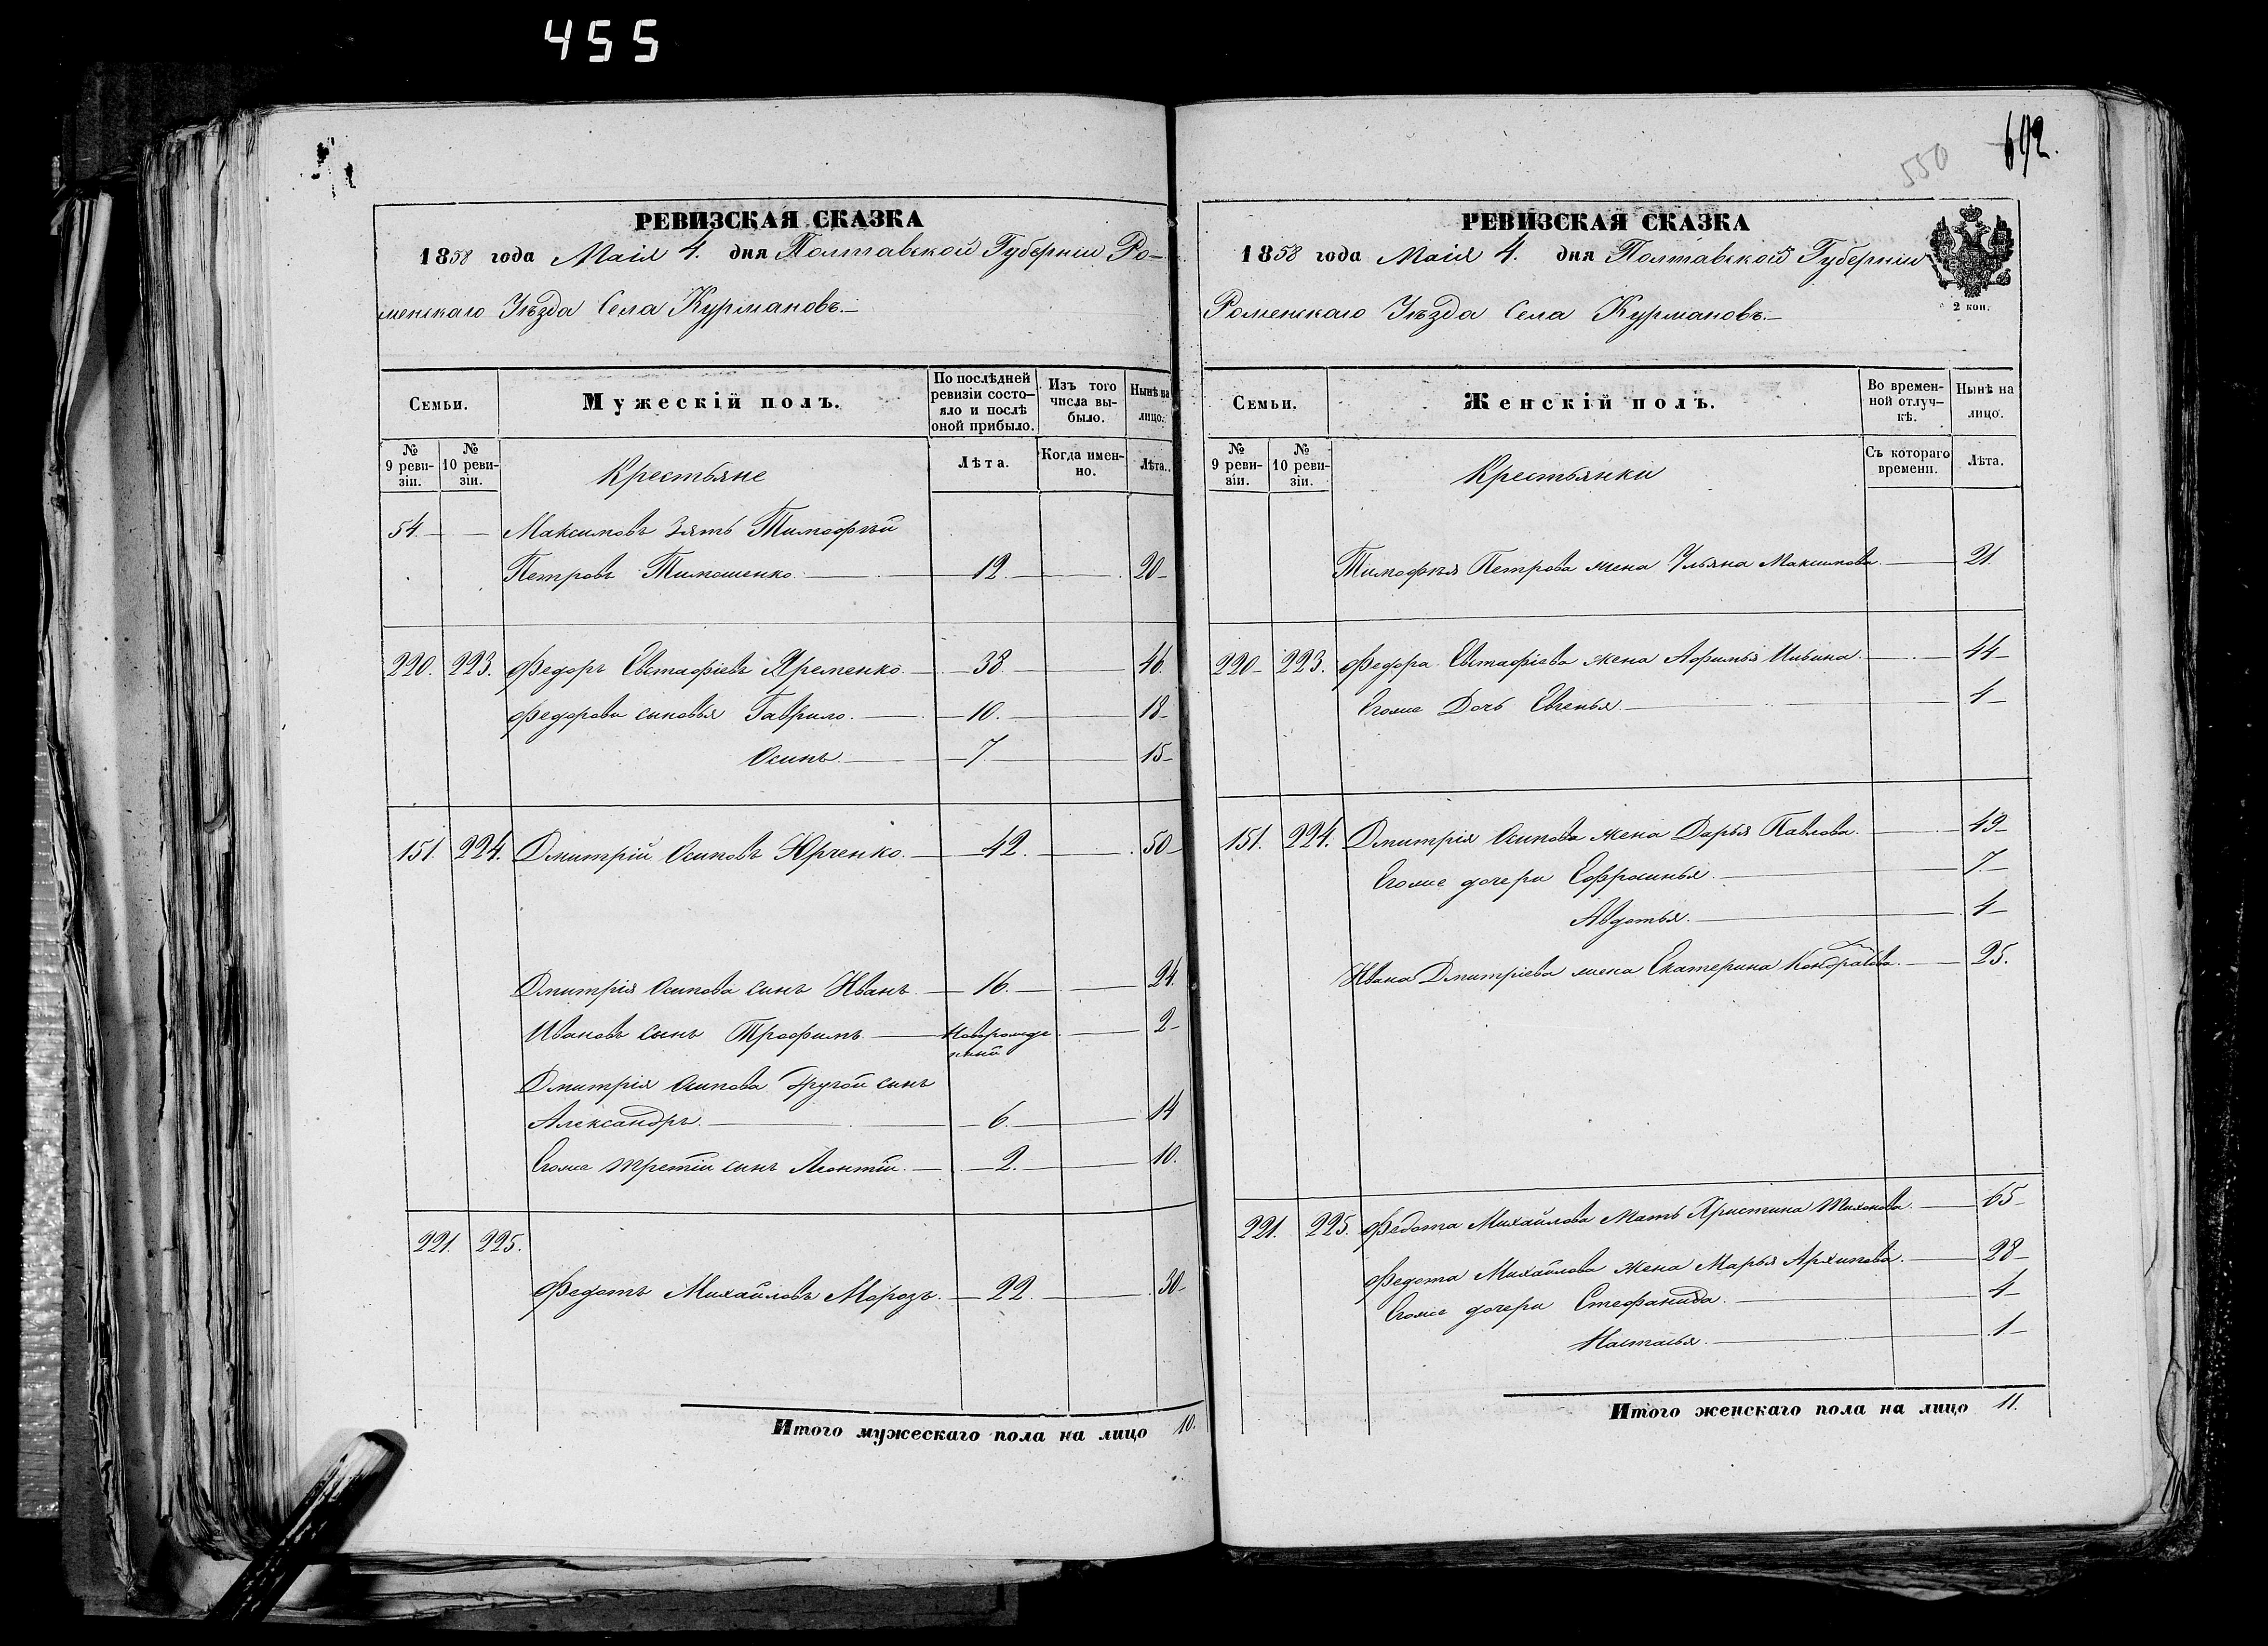 455
РЕВИЗСКАЯ СКАЗКА
1858 года Маія 4. дня Полтавской Губерніи Ро-
менскаго Уѣзда Села Курмановъ.
Семьи.
Мужескій полъ.
По послѣдней ревизіи состо-яло и послѣ оной прибыло.
Изъ того числа вы-было.
Нынѣ на лицо.
№ 9 реви-зіи.
№ 10 реви-зіи.
Крестьяне
Лѣта.
Когда имен-но.
Лѣта.
54. — Максимовъ Зять Тимофѣй
Петровъ Тимошенко. 12. 20
220. 223. Федоръ Евстафіевъ Яременко. 38. 46.
Федоровы сыновья Гаврило. 10. 18
Осипъ. 7. 15
151. 224. Дмитрій Осиповъ Юрченко. 42. 50
Дмитрія Осипова сынъ Иванъ. 16. 24.
Ивановъ сынъ Трофимъ. Новорожде 2
нный
Дмитрія Осипова другой сынъ
Александръ. 6. 14
Егоже третій сынъ Леонтій. 2. 10.
221. 225.
Федотъ Михайловъ Морозъ. 22. 30
Итого мужескаго пола на лицо 10.
550
692.
РЕВИЗСКАЯ СКАЗКА
1858 года Маія 4. дня Полтавской Губерніи
Роменскаго Уѣзда Села Курмановъ.
2 коп.
Семьи.
Женскій полъ.
Во времен-ной отлуч-кѣ.
Нынѣ на лицо.
№ 9 реви-зіи.
№ 10 реви-зіи.
Крестьянки
Съ котораго времени.
Лѣта.
Тимофѣя Петрова жена Ульяна Максимова. 21.
220 223. Федора Евстафіева жена Афимья Ильина. 44
Егоже Дочь Евгенья. 1
151. 224. Дмитрія Осипова жена Дарья Павлова. 49
Егоже дочери Ефросинья. 7.
Авдотья. 1
Ивана Дмитріева жена Екатерина Кондратова. 25.
221. 225. Федота Михайлова Мать Христина Тихонова. 65
Федота Михайлова жена Марья Архипова. 28
Егоже дочери Стефанида. 4
Настасья. 1
Итого женскаго пола на лицо 11.